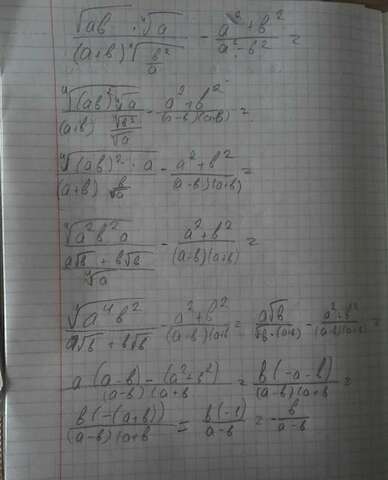 √ab · ⁴√a / (a+b) ⁴√(b²/a) - (a²+b²)/(a²-b²) =
⁴√((ab)² ⁴√a / (a+b) ⁴√b²/⁴√a - (a²+b²)/((a-b)(a+b)) =
⁴√((ab)² · a) / (a+b) b/√a - (a²+b²)/((a-b)(a+b)) =
⁴√(a²b²a) / (a√b + b√b)/⁴√a - (a²+b²)/((a-b)(a+b)) =
⁴√(a⁴b²) / (a√b + b√b) - (a²+b²)/((a-b)(a+b)) = a√b/(√b·(a+b)) - (a²+b²)/((a-b)(a+b)) =
(a(a-b) - (a²+b²))/((a-b)(a+b) = b(-a-b)/((a-b)(a+b) =
b(-(a+b))/((a-b)(a+b) = b(-1)/(a-b) = -b/(a-b)